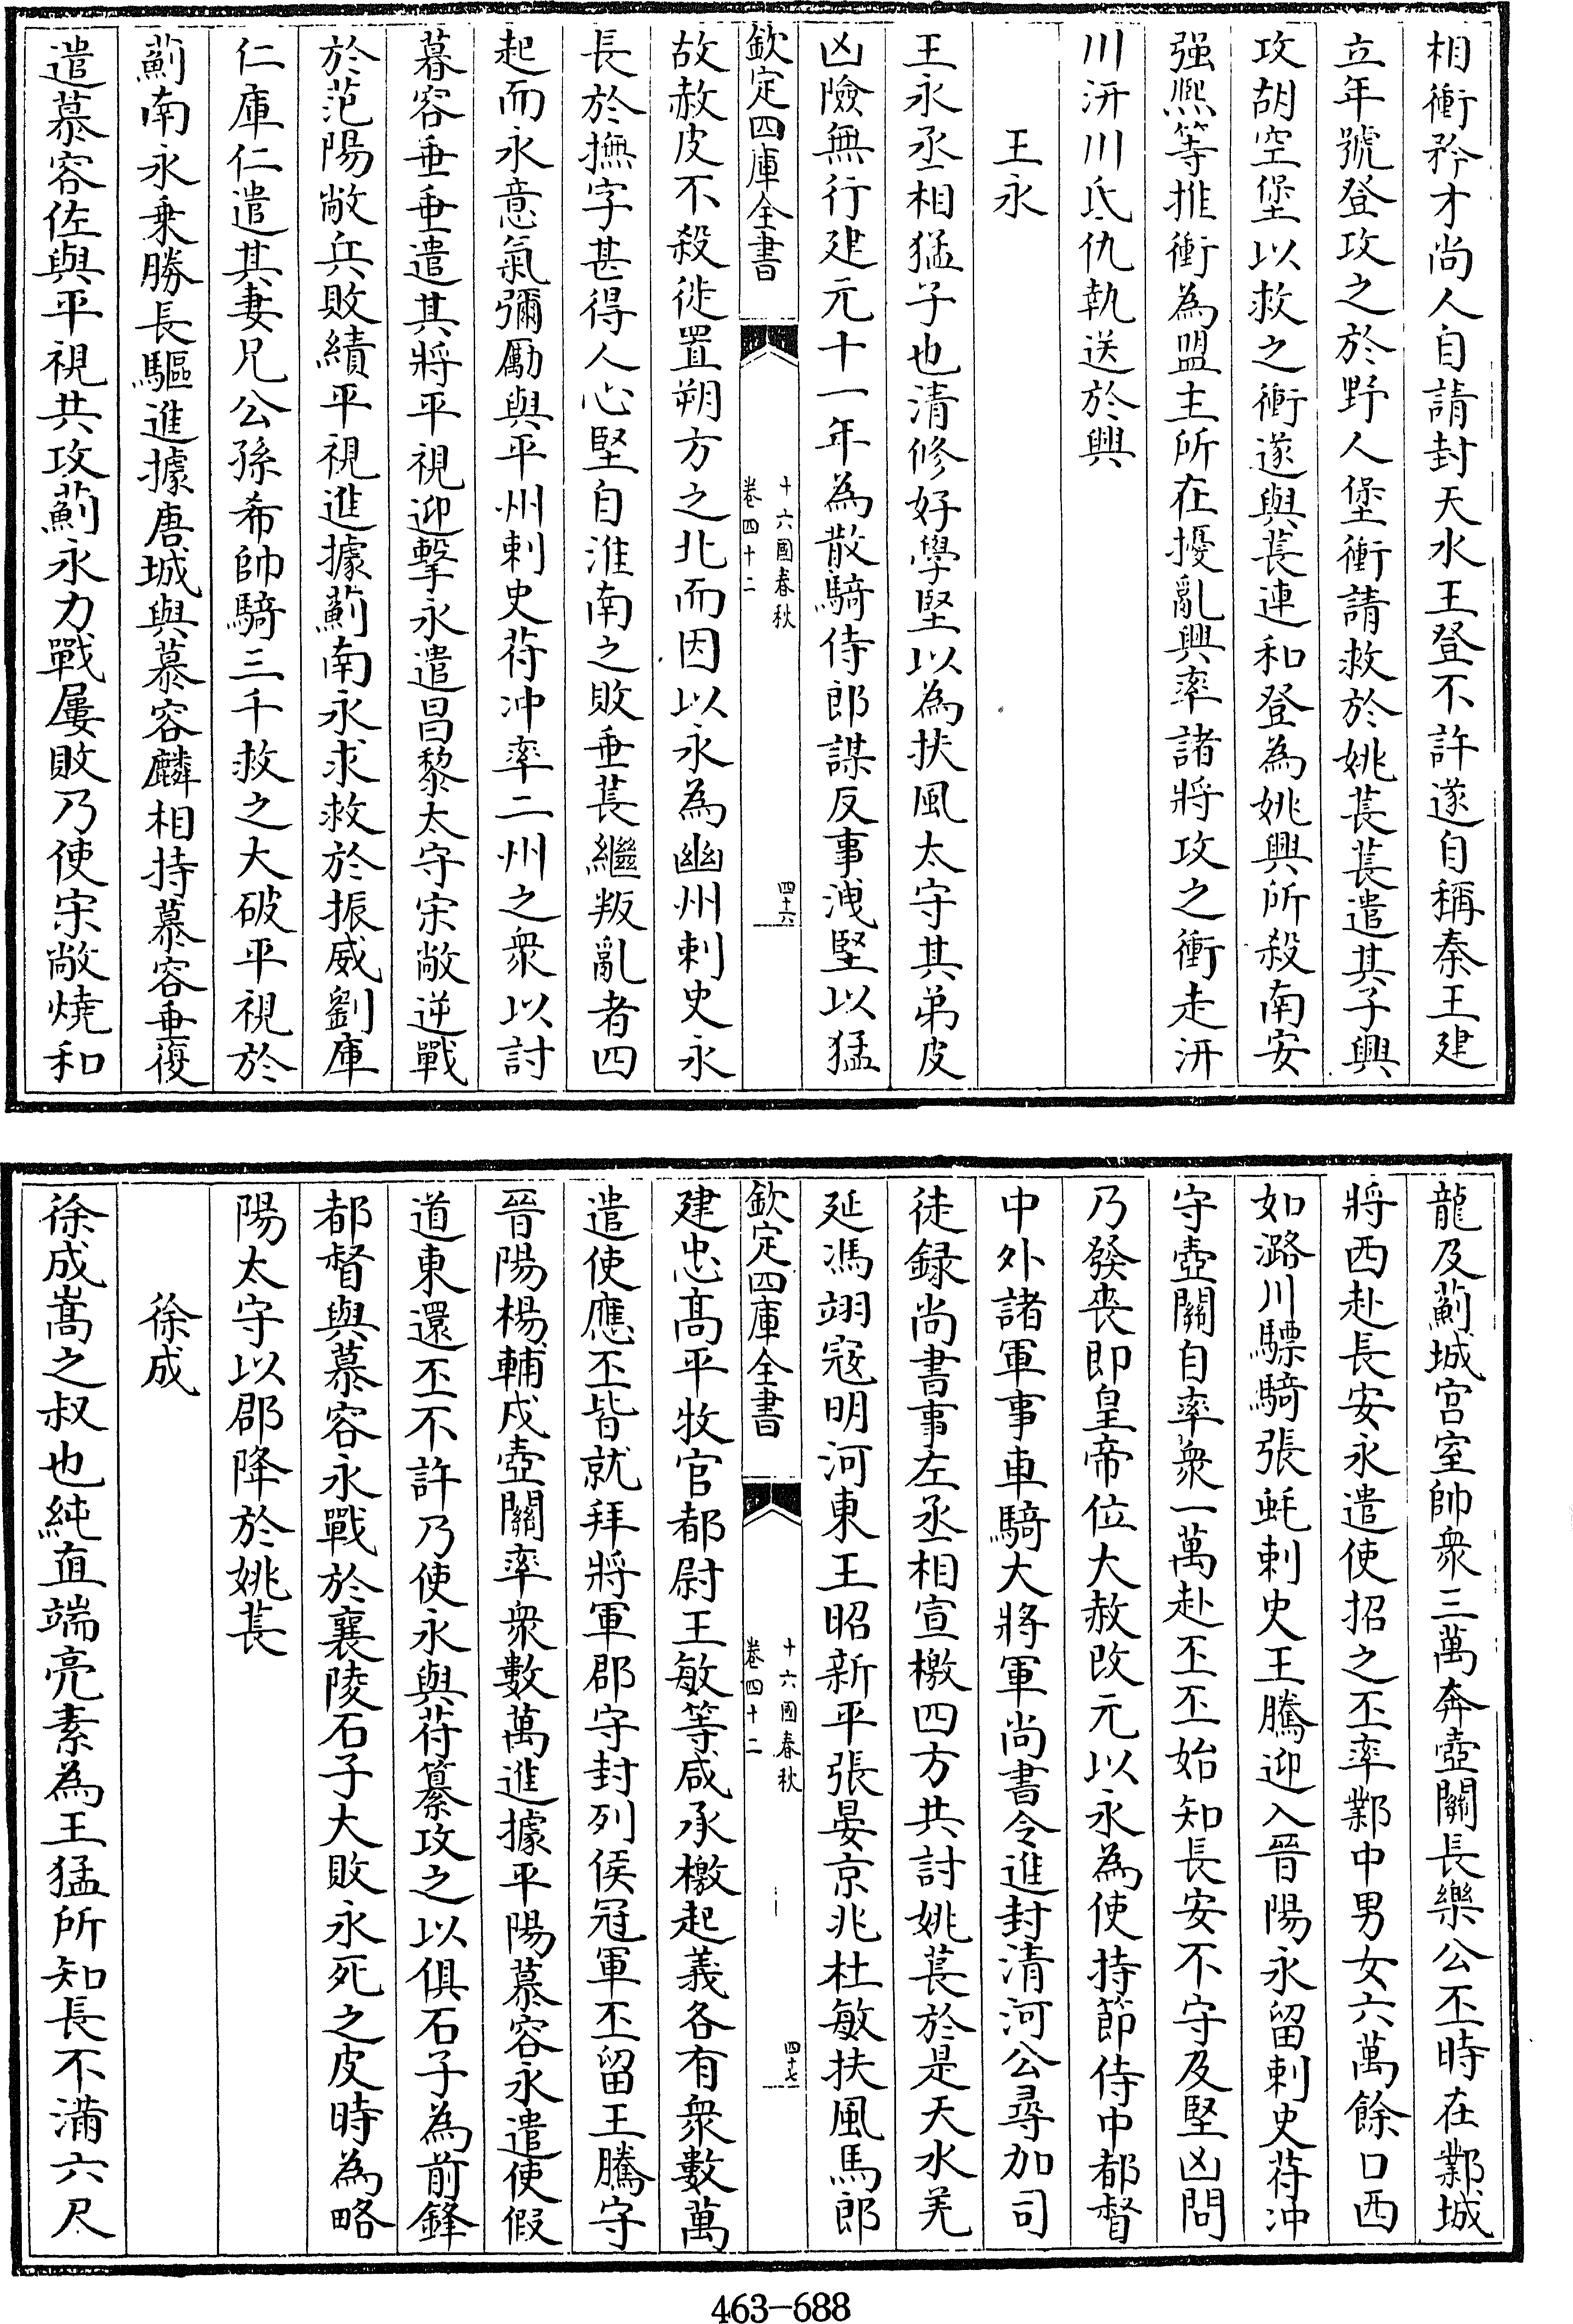 相衝矜才尚人自請封天水王登不許遂自稱秦王建
立年號登攻之於野人堡衝請救於姚萇萇遣其子興
攻胡空堡以救之衝遂與萇連和登為姚興所殺南安
强熈等推衝為盟主所在擾亂興率諸將攻之衝走汧
川汧川氐仇執送於興
王永
王永丞相猛子也清修好學堅以為扶風太守其弟皮
凶險無行建元十一年為散騎侍郎謀反事洩堅以猛
欽定四庫全書
十六國春秋
卷四十二
四十六
故赦皮不殺徙置朔方之北而因以永為幽州刺史永
長於撫字甚得人心堅自淮南之敗垂萇繼叛亂者四
起而永意氣彌勵與平州刺史苻冲率二州之衆以討
慕容垂垂遣其將平視迎擊永遣昌黎太守宋敞逆戰
於范陽敞兵敗績平視進據薊南永求救於振威劉庫
仁庫仁遣其妻兄公孫希帥騎三千救之大破平視於
薊南永乗勝長驅進據唐城與慕容麟相持慕容垂復
遣慕容佐與平視共攻薊永力戰屢敗乃使宋敞燒和
龍及薊城宫室帥衆三萬奔壺關長樂公丕時在鄴城
將西赴長安永遣使招之丕率鄴中男女六萬餘口西
如潞川驃騎張蚝刺史王騰迎入晉陽永留刺史苻冲
守壺關自率衆一萬赴丕丕始知長安不守及堅凶問
乃發丧即皇帝位大赦改元以永為使持節侍中都督
中外諸軍事車騎大將軍尚書令進封清河公尋加司
徒録尚書事左丞相宣檄四方共討姚萇於是天水羌
延馮翊寇明河東王昭新平張晏京兆杜敏扶風馬郎
欽定四庫全書
十六國春秋
卷四十二
四十七
建忠髙平牧官都尉王敏等咸承檄起義各有衆數萬
遣使應丕皆就拜將軍郡守封列侯冠軍丕留王騰守
晉陽楊輔戍壺關率衆數萬進據平陽慕容永遣使假
道東還丕不許乃使永與苻纂攻之以俱石子為前鋒
都督與慕容永戰於襄陵石子大敗永死之皮時為略
陽太守以郡降於姚萇
徐成
徐成嵩之叔也純直端亮素為王猛所知長不滿六尺
463-688